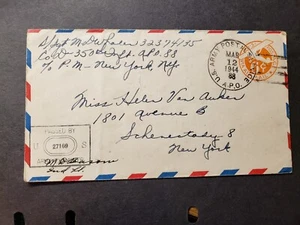 S/Sgt M D Whalen 32574135
Co D - 350th Inf. A.P.O. 88
c/o P.M - New York, N.Y.
U.S. ARMY POSTAL SERVICE
A.P.O.
MAR
12
1944
88
Miss Helen Van Auken
1801 Avenue B
Schenectady 8
New York
PASSED BY
U S
27198